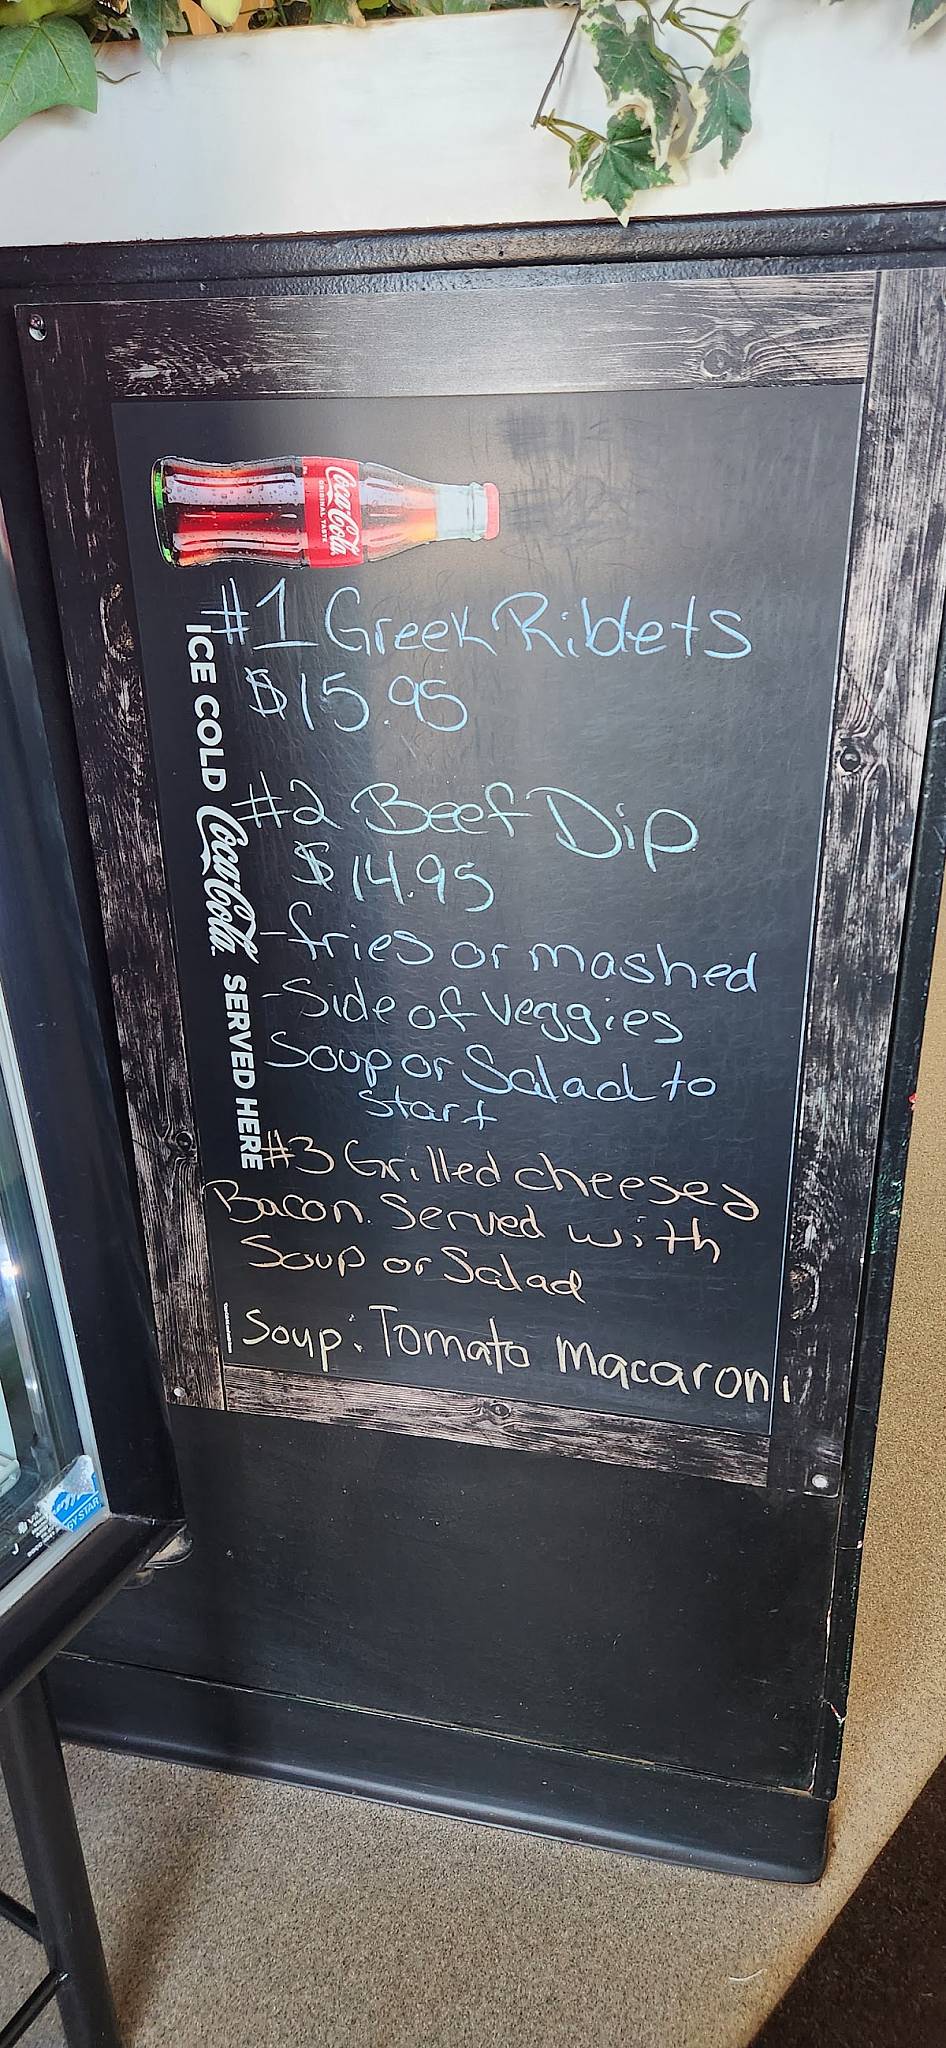 Coca-Cola
ORIGINAL TASTE
ICE COLD Coca-Cola SERVED HERE
#1 Greek Riblets
$15.95
#2 Beef Dip
$14.95
-fries or mashed
-Side of Veggies
Soup or Salad to
start
#3 Grilled cheese &
Bacon. Served with
Soup or Salad
Soup: Tomato macaroni